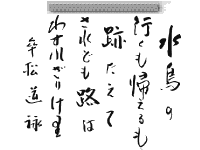 水鳥の
行くも帰るも
跡たえて
されども路は
わすれざりけり
傘松道詠